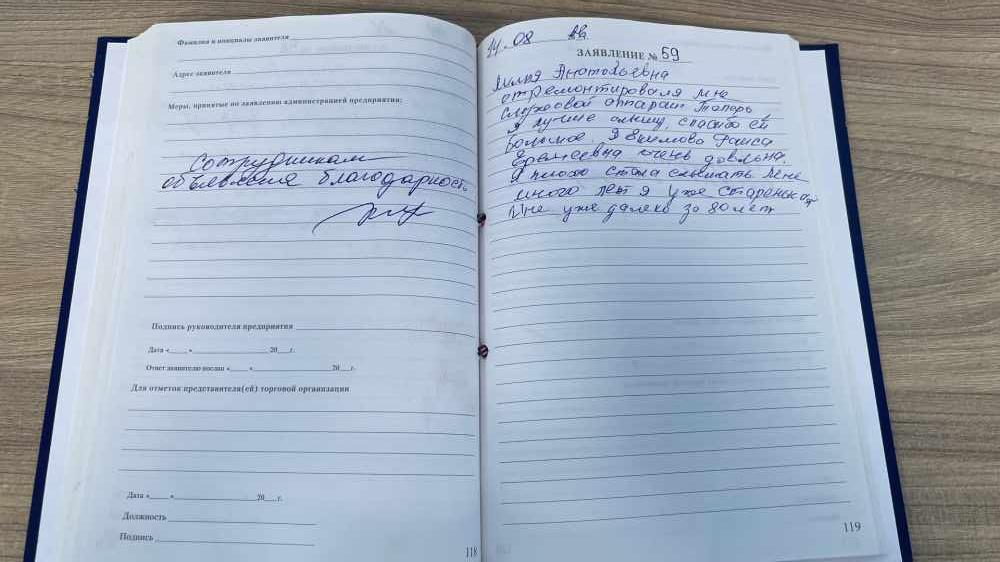 Фамилия и инициалы заявителя
Адрес заявителя
Меры, принятые по заявлению администрацией предприятия:
Сотрудникам
объявлена благодарность
Подпись руководителя предприятия
Дата «___» ___ 20__г.
Ответ заявителю послан «___» ___ 20__г.
Для отметок представителя(ей) торговой организации
Дата «___» ___ 20__г.
Должность
Подпись
118
14.08
ЗАЯВЛЕНИЕ № 59
Лилия Анатольевна
отремонтировала мне
слуховой аппарат Теперь
я лучше слышу, спасибо ей
большое Раиса
Еремеевна очень довольна.
Я плохо стала слышать мне
много лет я уже старенькая
Мне уже далеко за 80 лет
119